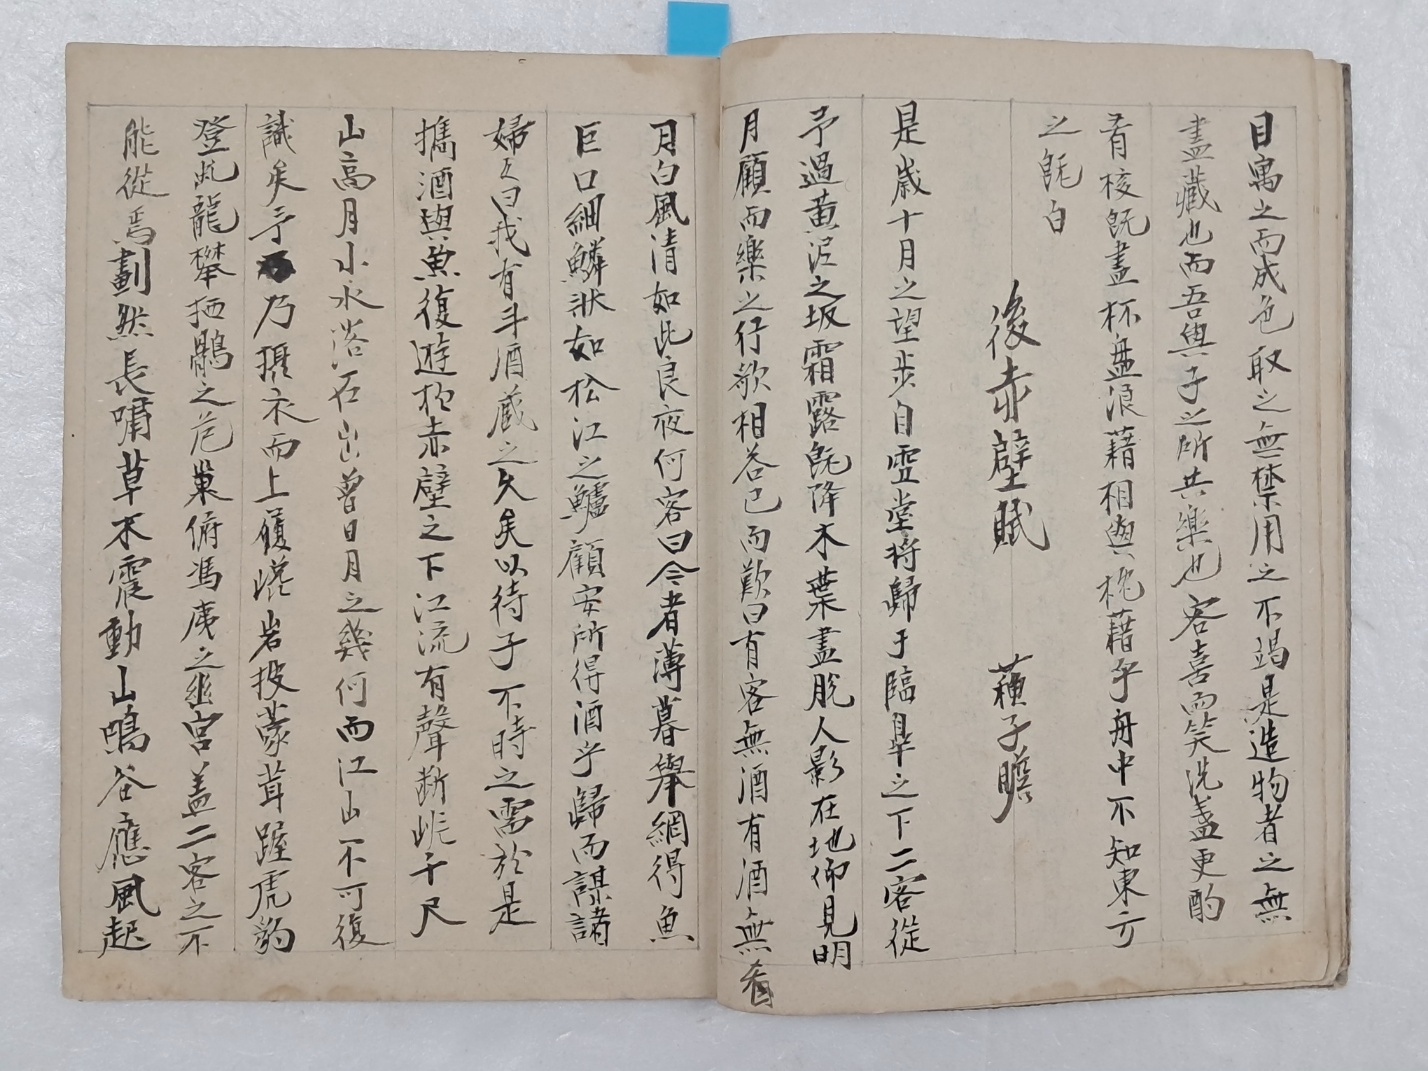 目寓之而成色取之無禁用之不竭是造物者之無
盡藏也而吾與子之所共樂也客喜而笑洗盞更酌
肴核旣盡杯盤浪藉相與枕藉乎舟中不知東方
之旣白
後赤壁賦 蘓子瞻
是歲十月之望步自雪堂將歸于臨臯之下二客從
予過黃泥之坂霜露旣降木葉盡脫人影在地仰見明
月顧而樂之行歌相答已而歎曰有客無酒有酒無肴
月白風清如此良夜何客曰今者薄暮擧網得魚
巨口細鱗狀如松江之鱸顧安所得酒乎歸而謀諸
婦婦曰我有斗酒藏之久矣以待子不時之需於是
携酒與魚復遊於赤壁之下江流有聲斷岸千尺
山高月小水落石出曾日月之幾何而江山不可復
識矣予乃攝衣而上履巉岩披蒙茸踞虎豹
登虬龍攀栖鶻之危巢俯馮夷之幽宮盖二客之不
能從焉劃然長嘯草木震動山鳴谷應風起